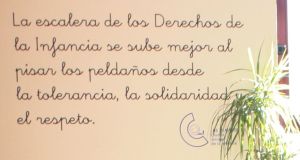 La escalera de los Derechos de
la Infancia se sube mejor al
pisar los peldaños desde
la tolerancia, la solidaridad y
el respeto.